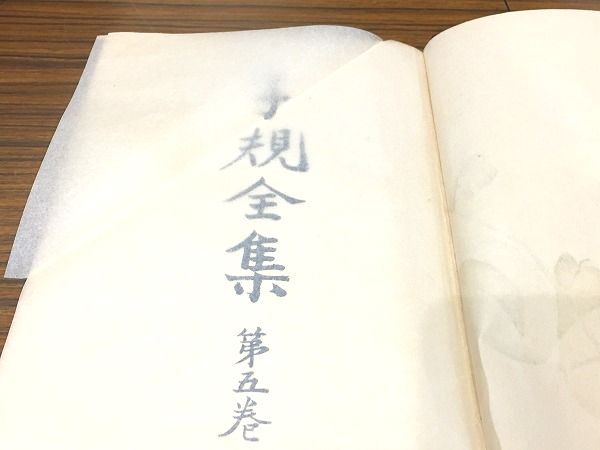 子規全集
第五巻